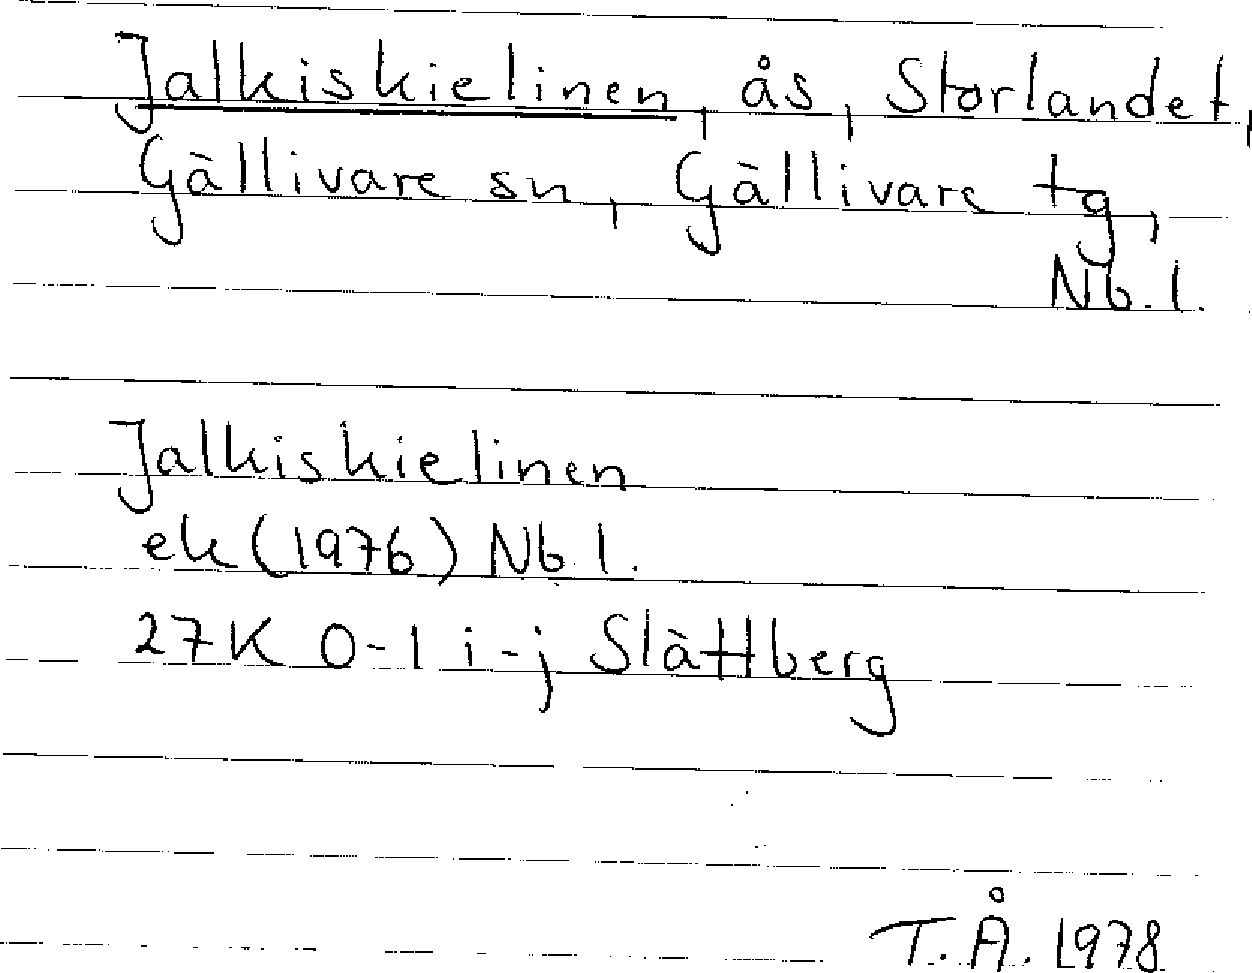 Jalkiskielinen, ås, Storlandet,
Gällivare sn, Gällivare tg,
Nb. l.
Jalkiskielinen
ek (1976) Nb l.
27K 0-1 i-j Slättberg
T.Å. 1978